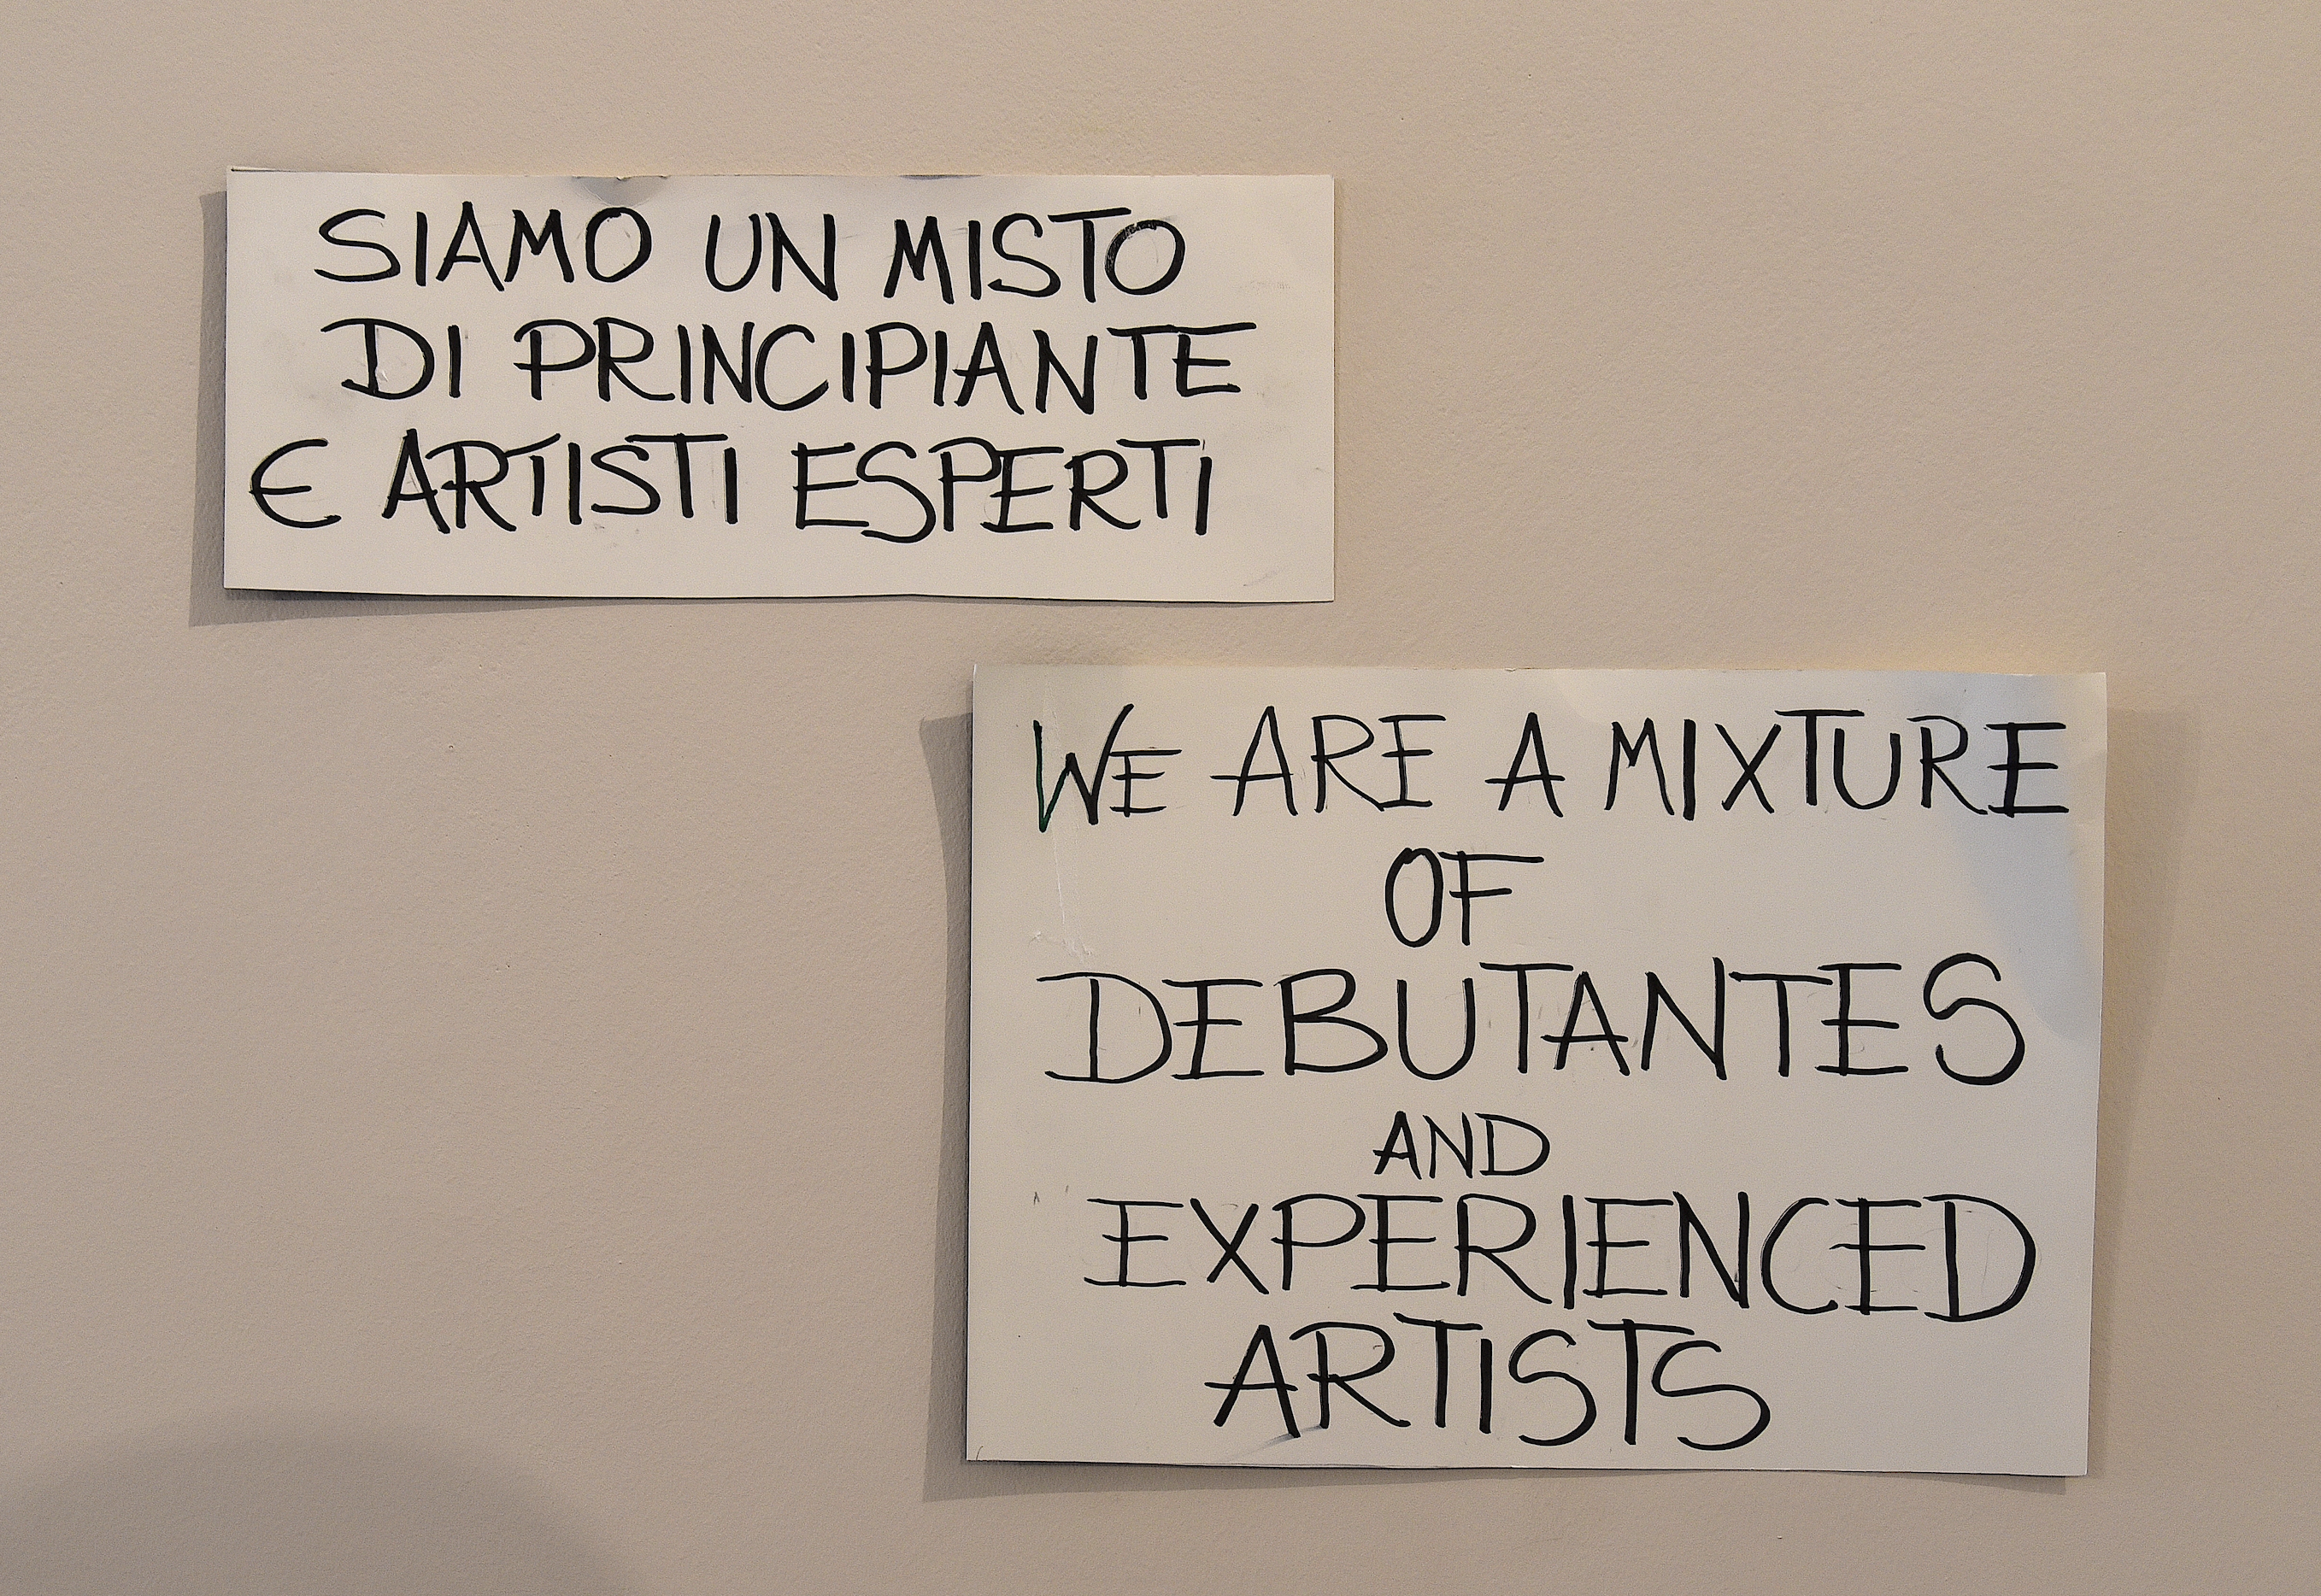 SIAMO UN MISTO
DI PRINCIPIANTE
E ARTISTI ESPERTI
WE ARE A MIXTURE
OF
DEBUTANTES
AND
EXPERIENCED
ARTISTS